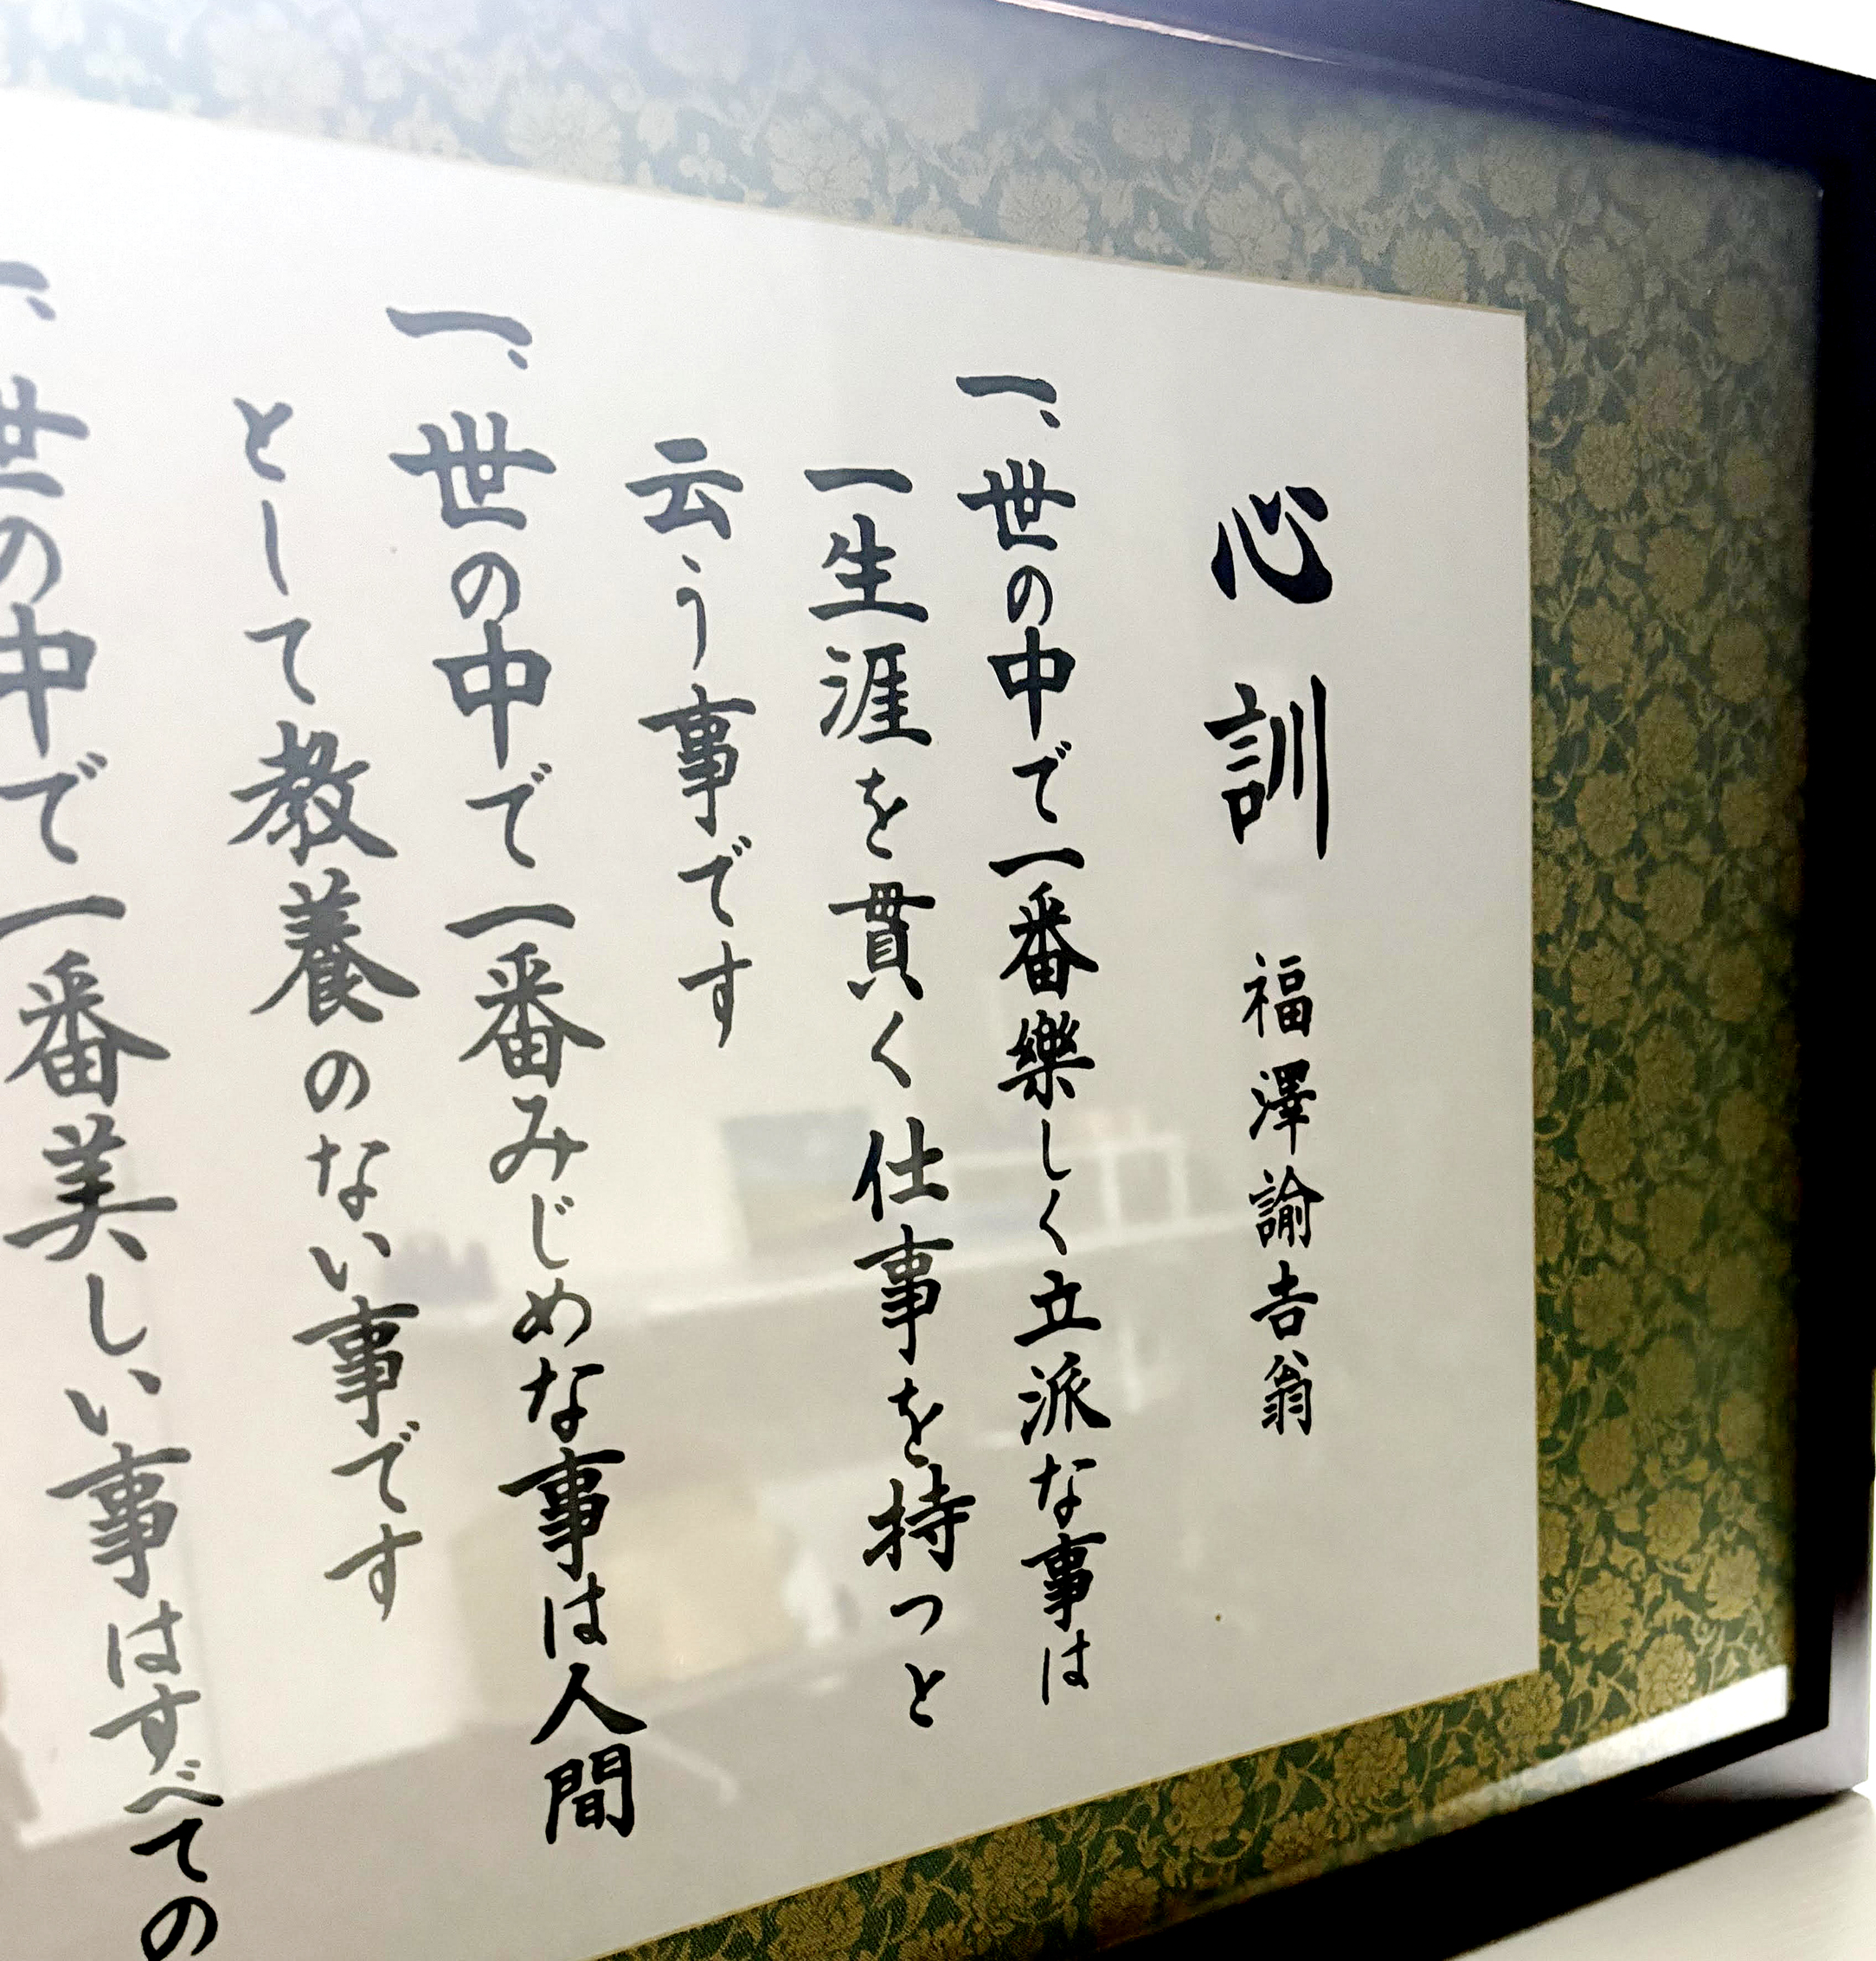 心訓 福澤諭吉翁
一、世の中で一番樂しく立派な事は
一生涯を貫く仕事を持つと
云う事です
一、世の中で一番みじめな事は人間
として教養のない事です
一、世の中で一番美しい事はすべての